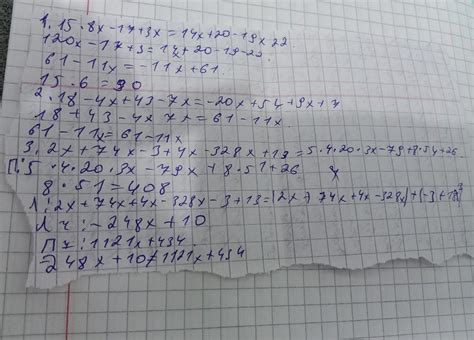 1. 15 · 8x - 17 + 3x = 14x + 20 - 19x 22
120x - 17 + 3 = 14x + 20 - 19 - 22
61 - 11x = -11x + 61
15 · 6 = 90
2. 18 - 4x + 43 - 7x = -20x + 54 + 9x + 7
18 + 43 - 4x 7x = 61 - 11x
61 - 11x = 61 - 11x
3. 2x + 74x - 3 + 4x - 328x + 13 = 5 · 4 · 20 · 3x - 79 + 8 · 54 + 26
П: 5 · 4 · 20 · 3x - 79x + 8 · 51 + 26
8 · 51 = 408
Л: 2x + 74x + 4x - 328x - 3 + 13 = (2x + 74x + 4x - 328x) + (-3 + 13)
Л ч: -248x + 10
П ч: 1121x + 434
-248x + 10 ≠ 1121x + 434